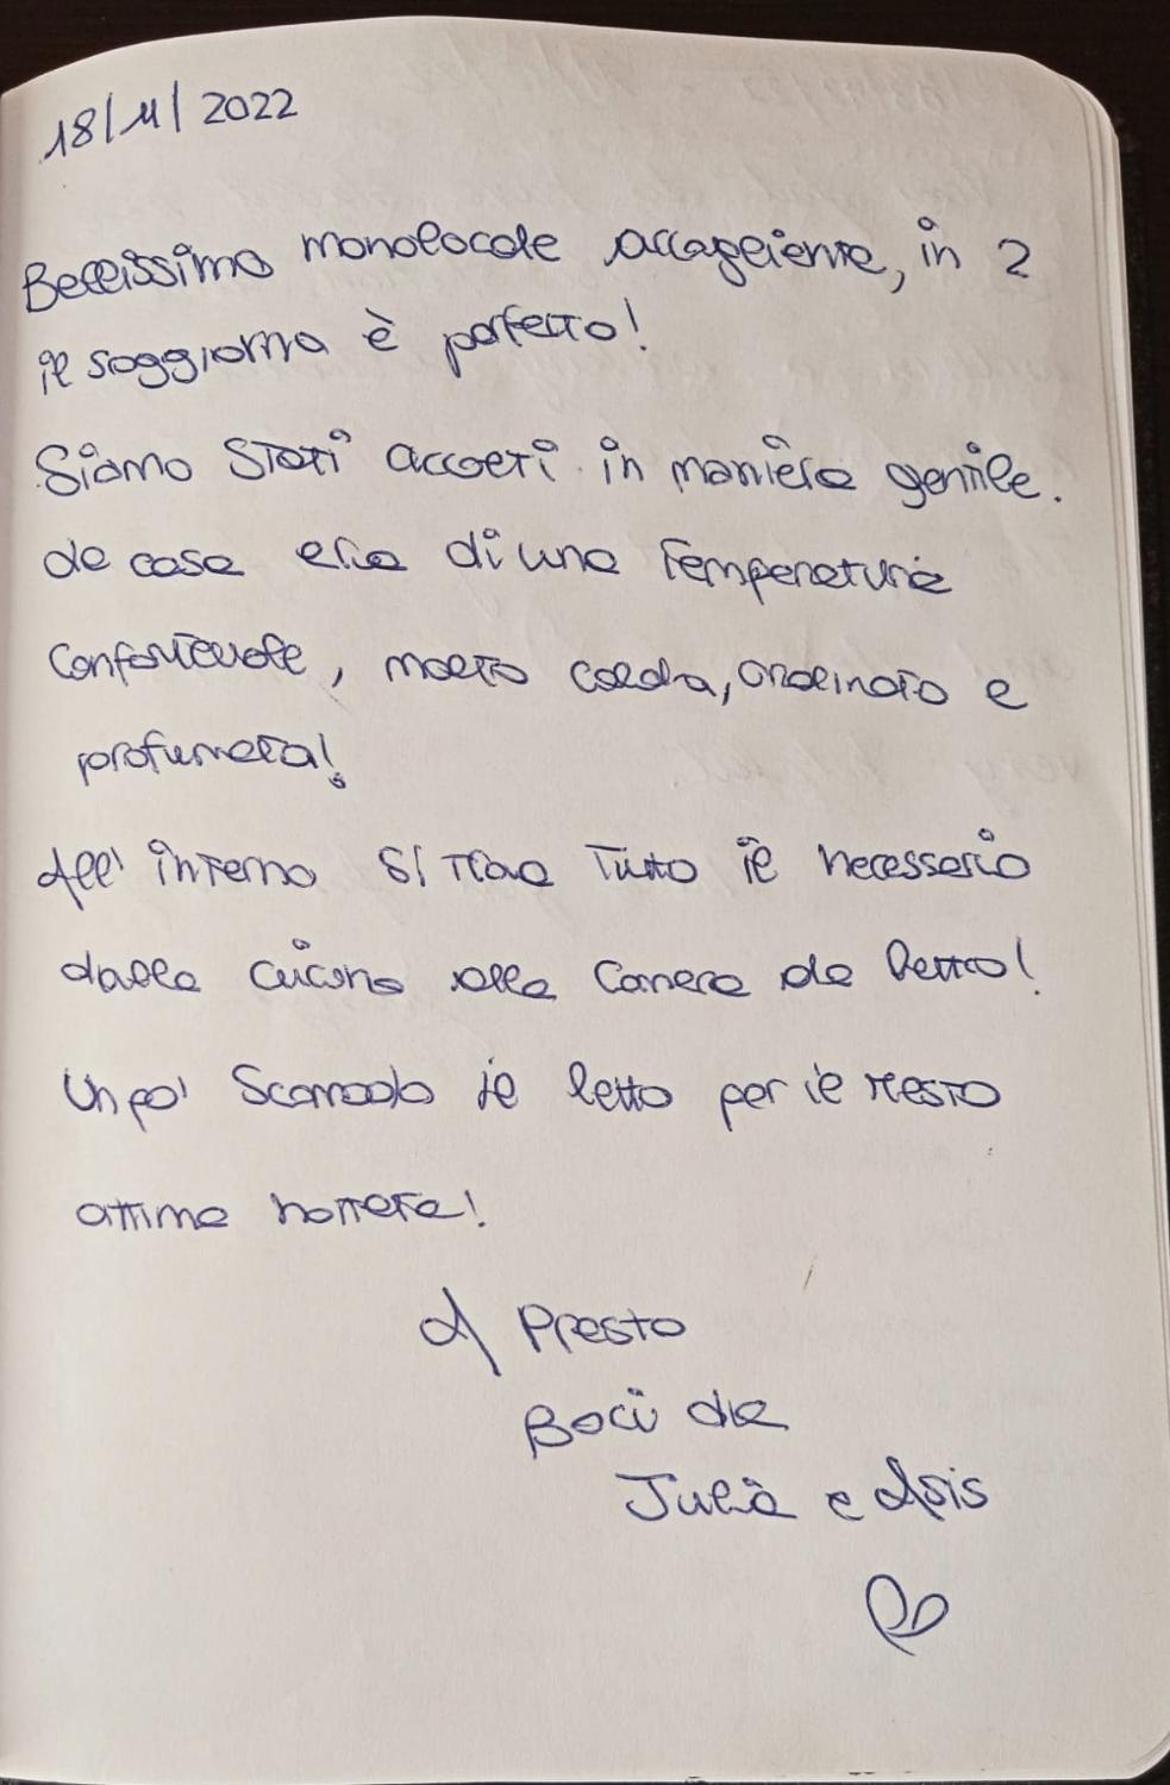 18/11/2022
Bellissimo monolocale accogliente, in 2
il soggiorno è perfetto!
Siamo stati accolti in maniera gentile.
La casa era di una temperatura
confortevole, molto calda, ordinata e
profumata!
All' interno si trova tutto il necessario
dalla cucina alla camera da letto!
Un po' scomodo il letto per il resto
ottima nottata!
A presto
Baci da
Julia e